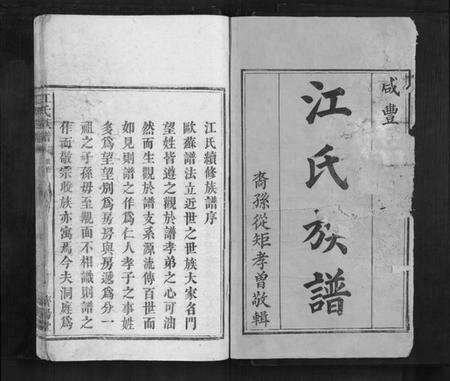 咸豐
江氏族譜
裔孫從矩孝曾敬輯
江氏續修族譜序
歐蘇譜法立近世之世族大家各門
望姓皆遵之觀於譜孝弟之心可油
然而生觀於譜支系源流傳百世而
如見則譜之作為仁人孝子之事姓
為望望別為房房與房遞為分一
祖之子孫毋至覿面不相識則譜之
作而敬宗收族亦寓焉今夫洞庭為